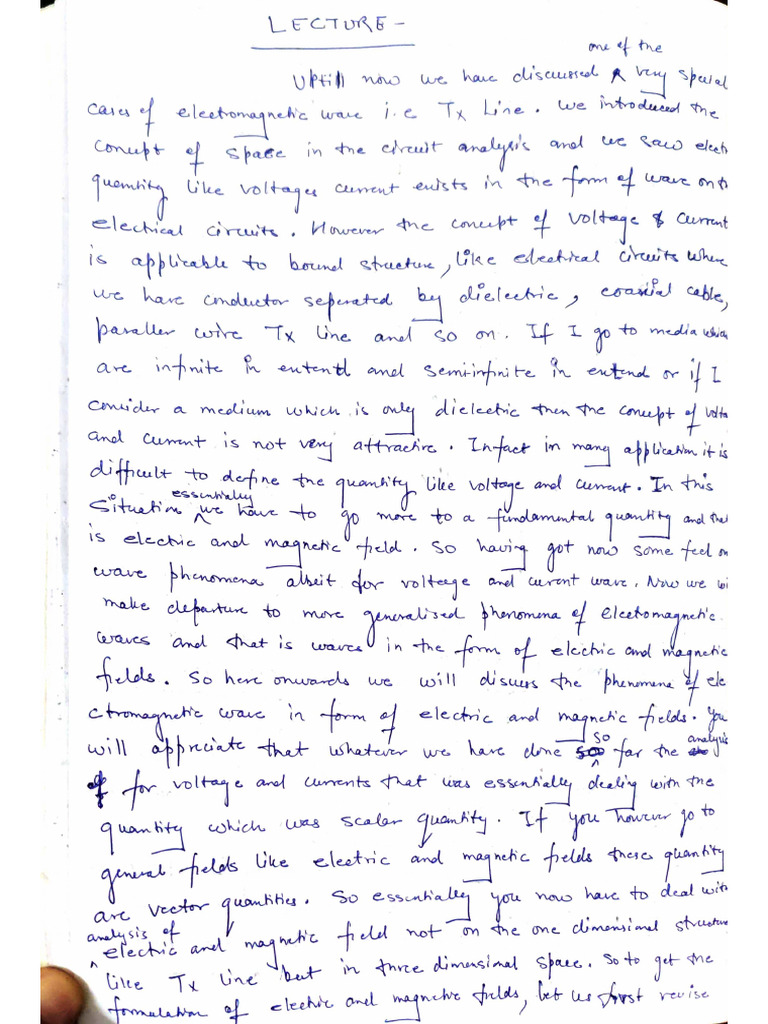 LECTURE -
one of the
Uptill now we have discussed very special
cases of electromagnetic wave i.e Tx Line. We introduced the
concept of space in the circuit analysis and we saw electi
quantity like voltages current exists in the form of wave on th
electrical circuits. However the concept of voltage & current
is applicable to bound structure, like electrical circuits where
we have conductor seperated by dielectric, coaxial cable,
paraller wire Tx line and so on. If I go to media which
are infinite in extentd and semi-infinite in extend or if I
consider a medium which is only dielectric then the concept of volta
and current is not very attractive. Infact in many application it is
difficult to define the quantity like voltage and current. In this
situation essentially we have to go more to a fundamental quantity and that
is electric and magnetic field. So having got now some feel on
wave phenomena albeit for volteege and current wave. Now we wi
make departure to more generalised phenomena of electomagnetic
waves and that is waves in the form of electric and magnetic
fields. So here onwards we will discuss the phenomena of ele
ctromagnetic wave in form of electric and magnetic fields. You
will appreciate that whatever we have done so far the analysis
for voltage and currents that was essentially dealing with the
quantity which was scaler quantity. If you however go to
general fields like electric and magnetic fields these quantity
are vector quantities. So essentially you now have to deal with
analysis of
electric and magnetic field not on the one dimensional structure
like Tx line but in three dimensional space. So to get the
formulation of electric and magnetic fields, let us first revise